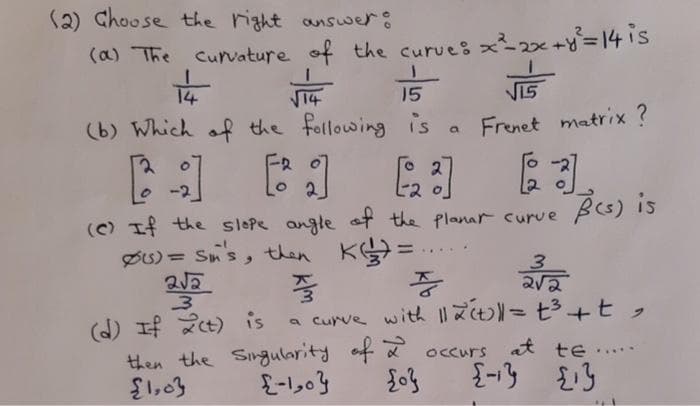 (2) Choose the right answer:
(a) The curvature of the curve: x²-2x+y²=14 is
1/14 1/√14 1/15 1/√15
(b) Which of the following is a Frenet matrix?
[2 0; 0 -2] [-2 0; 0 2] [0 2; -2 0] [0 -2; 2 0]
(c) If the slope angle of the planar curve β⃗(s) is
ø(s) = Sin⁻¹s, then K(1/3) = .....
2√2/3 π/3 π/6 3/2√2
(d) If α⃗(t) is a curve with ||α⃗'(t)|| = t³+t,
then the Singularity of α⃗ occurs at t∈ .....
{1,0} {-1,0} {0} {-1} {1}